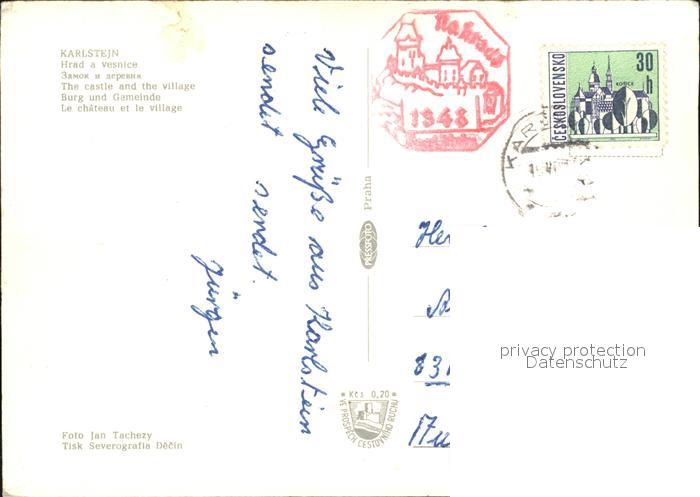 KARLSTEJN
Hrad a vesnice
Замок и деревня
The castle and the village
Burg und Gemeinde
Le château et le village
Viele Grüße aus Karlstein
sendet sendet.
Jürgen
Foto Jan Tachezy
Tisk Severografia Děčín
PRESSFOTO Praha
* Kčs 0,20 *
VE PROSPĚCH CESTOVNÍHO RUCHU
1348
ČESKOSLOVENSKO
30 h
KOŠICE
KAR
Her
831
privacy protection
Datenschutz